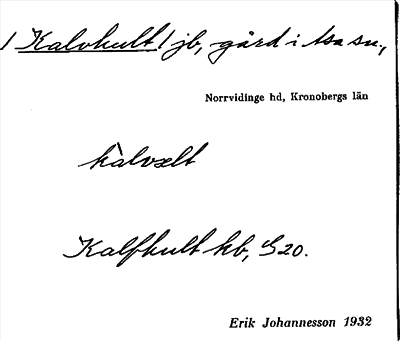 / Kalvhult / jb, gård i Asa sn.,
Norrvidinge hd, Kronobergs län
kàlvɷlt
Kalfhult kb, G20.
Erik Johannesson 1932